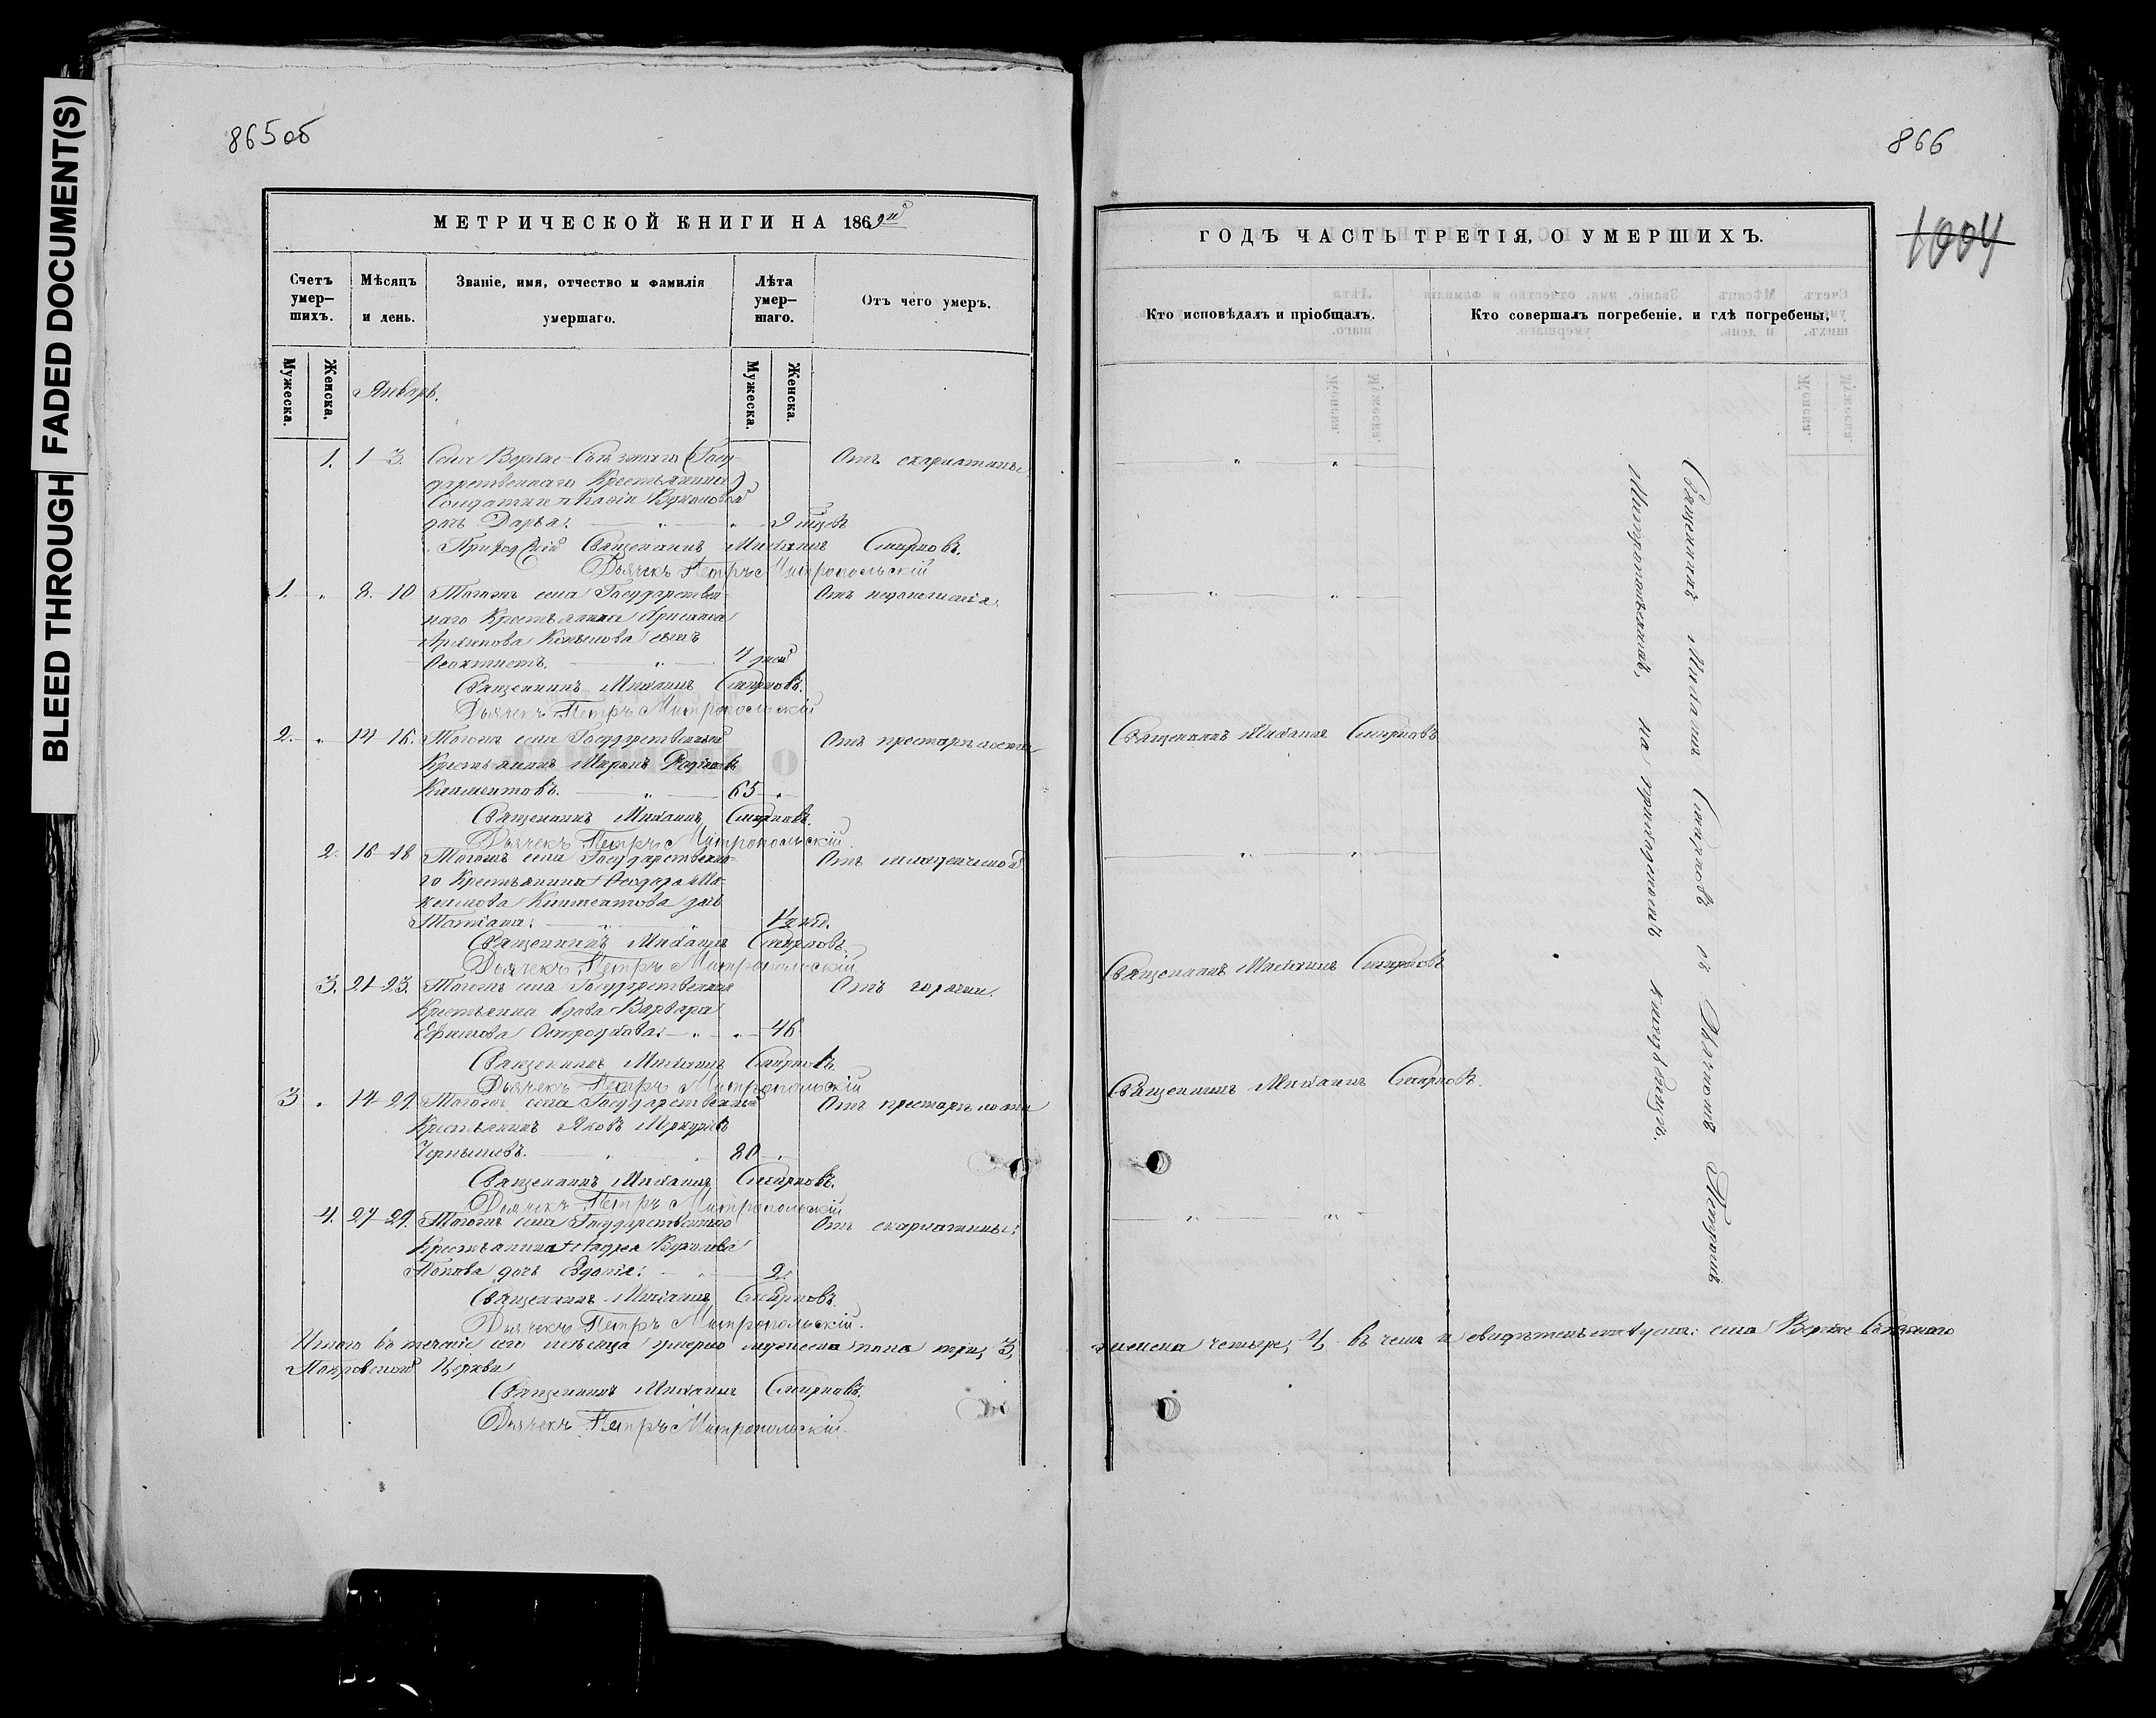 BLEED THROUGH
FADED DOCUMENT(S)
865об
МЕТРИЧЕСКОЙ КНИГИ НА 1869й
Счетъ умер-
шихъ.
Мѣсяцъ
и день.
Званіе, имя, отчество и фамилія
умершаго.
Лѣта
умер-
шаго.
Отъ чего умеръ.
Мужеска.
Женска.
Мужеска.
Женска.
Январь.
1. 1-3. Села (Госу- Отъ скарлатины
дарственнаго Крестьянина)
Солдатки
дочь Дарья. 9 мцев
Приходскій Священникъ Михаилъ Смирновъ.
Дьячекъ Петръ Митропольскій
1. 8. 10 Тогожъ села Государствен- Отъ
наго Крестьянина
сынъ
Феоктистъ. 4 дней
Священникъ Михаилъ Смирновъ.
Дьячекъ Петръ Митропольскій
2. 14 16. Тогожъ села Государственный Отъ престарѣлости
Крестьянинъ Миронъ
Климентовъ. 65
Священникъ Михаилъ Смирновъ.
Дьячекъ Петръ Митропольскій
2. 16 18 Тогожъ села Государственна- Отъ младенческой
го Крестьянина Феодора
Климентова дочь
Татіана. 1/2 год.
Священникъ Михаилъ Смирновъ.
Дьячекъ Петръ Митропольскій
3. 21-23. Тогожъ села Государственная Отъ горячки.
Крестьянка вдова Варвара
Ефимова Остроухова. 46
Священникъ Михаилъ Смирновъ
Дьячекъ Петръ Митропольскій
3 Тогожъ села Государственный Отъ престарѣлости
Крестьянинъ Яковъ Меркурьевъ
Чернышовъ. 80
Священникъ Михаилъ Смирновъ.
Дьячекъ Петръ Митропольскій
4. 27-29. Тогожъ села Государственнаго Отъ скарлатины.
Крестьянина Андрея
Попова дочь 2.
Священникъ Михаилъ Смирновъ
Дьячекъ Петръ Митропольскій.
Итого въ теченіе сего мѣсяца умерло мужеска пола три, 3,
Покровской Церкви
Священникъ Михаилъ Смирновъ.
Дьячекъ Петръ Митропольскій.
866
1004
ГОДЪ ЧАСТЬ ТРЕТІЯ, О УМЕРШИХЪ.
Кто исповѣдалъ и пріобщалъ.
Кто совершалъ погребеніе, и гдѣ погребены.
Священникъ Михаилъ Смирновъ
Священникъ Михаилъ Смирновъ
Священникъ Михаилъ Смирновъ.
Священникъ Михаилъ Смирновъ съ Дьячкомъ Петромъ
Митропольскимъ, на приходскомъ кладбищѣ.
женска четыре, 4, въ чемъ и свидѣтельствуемъ: села